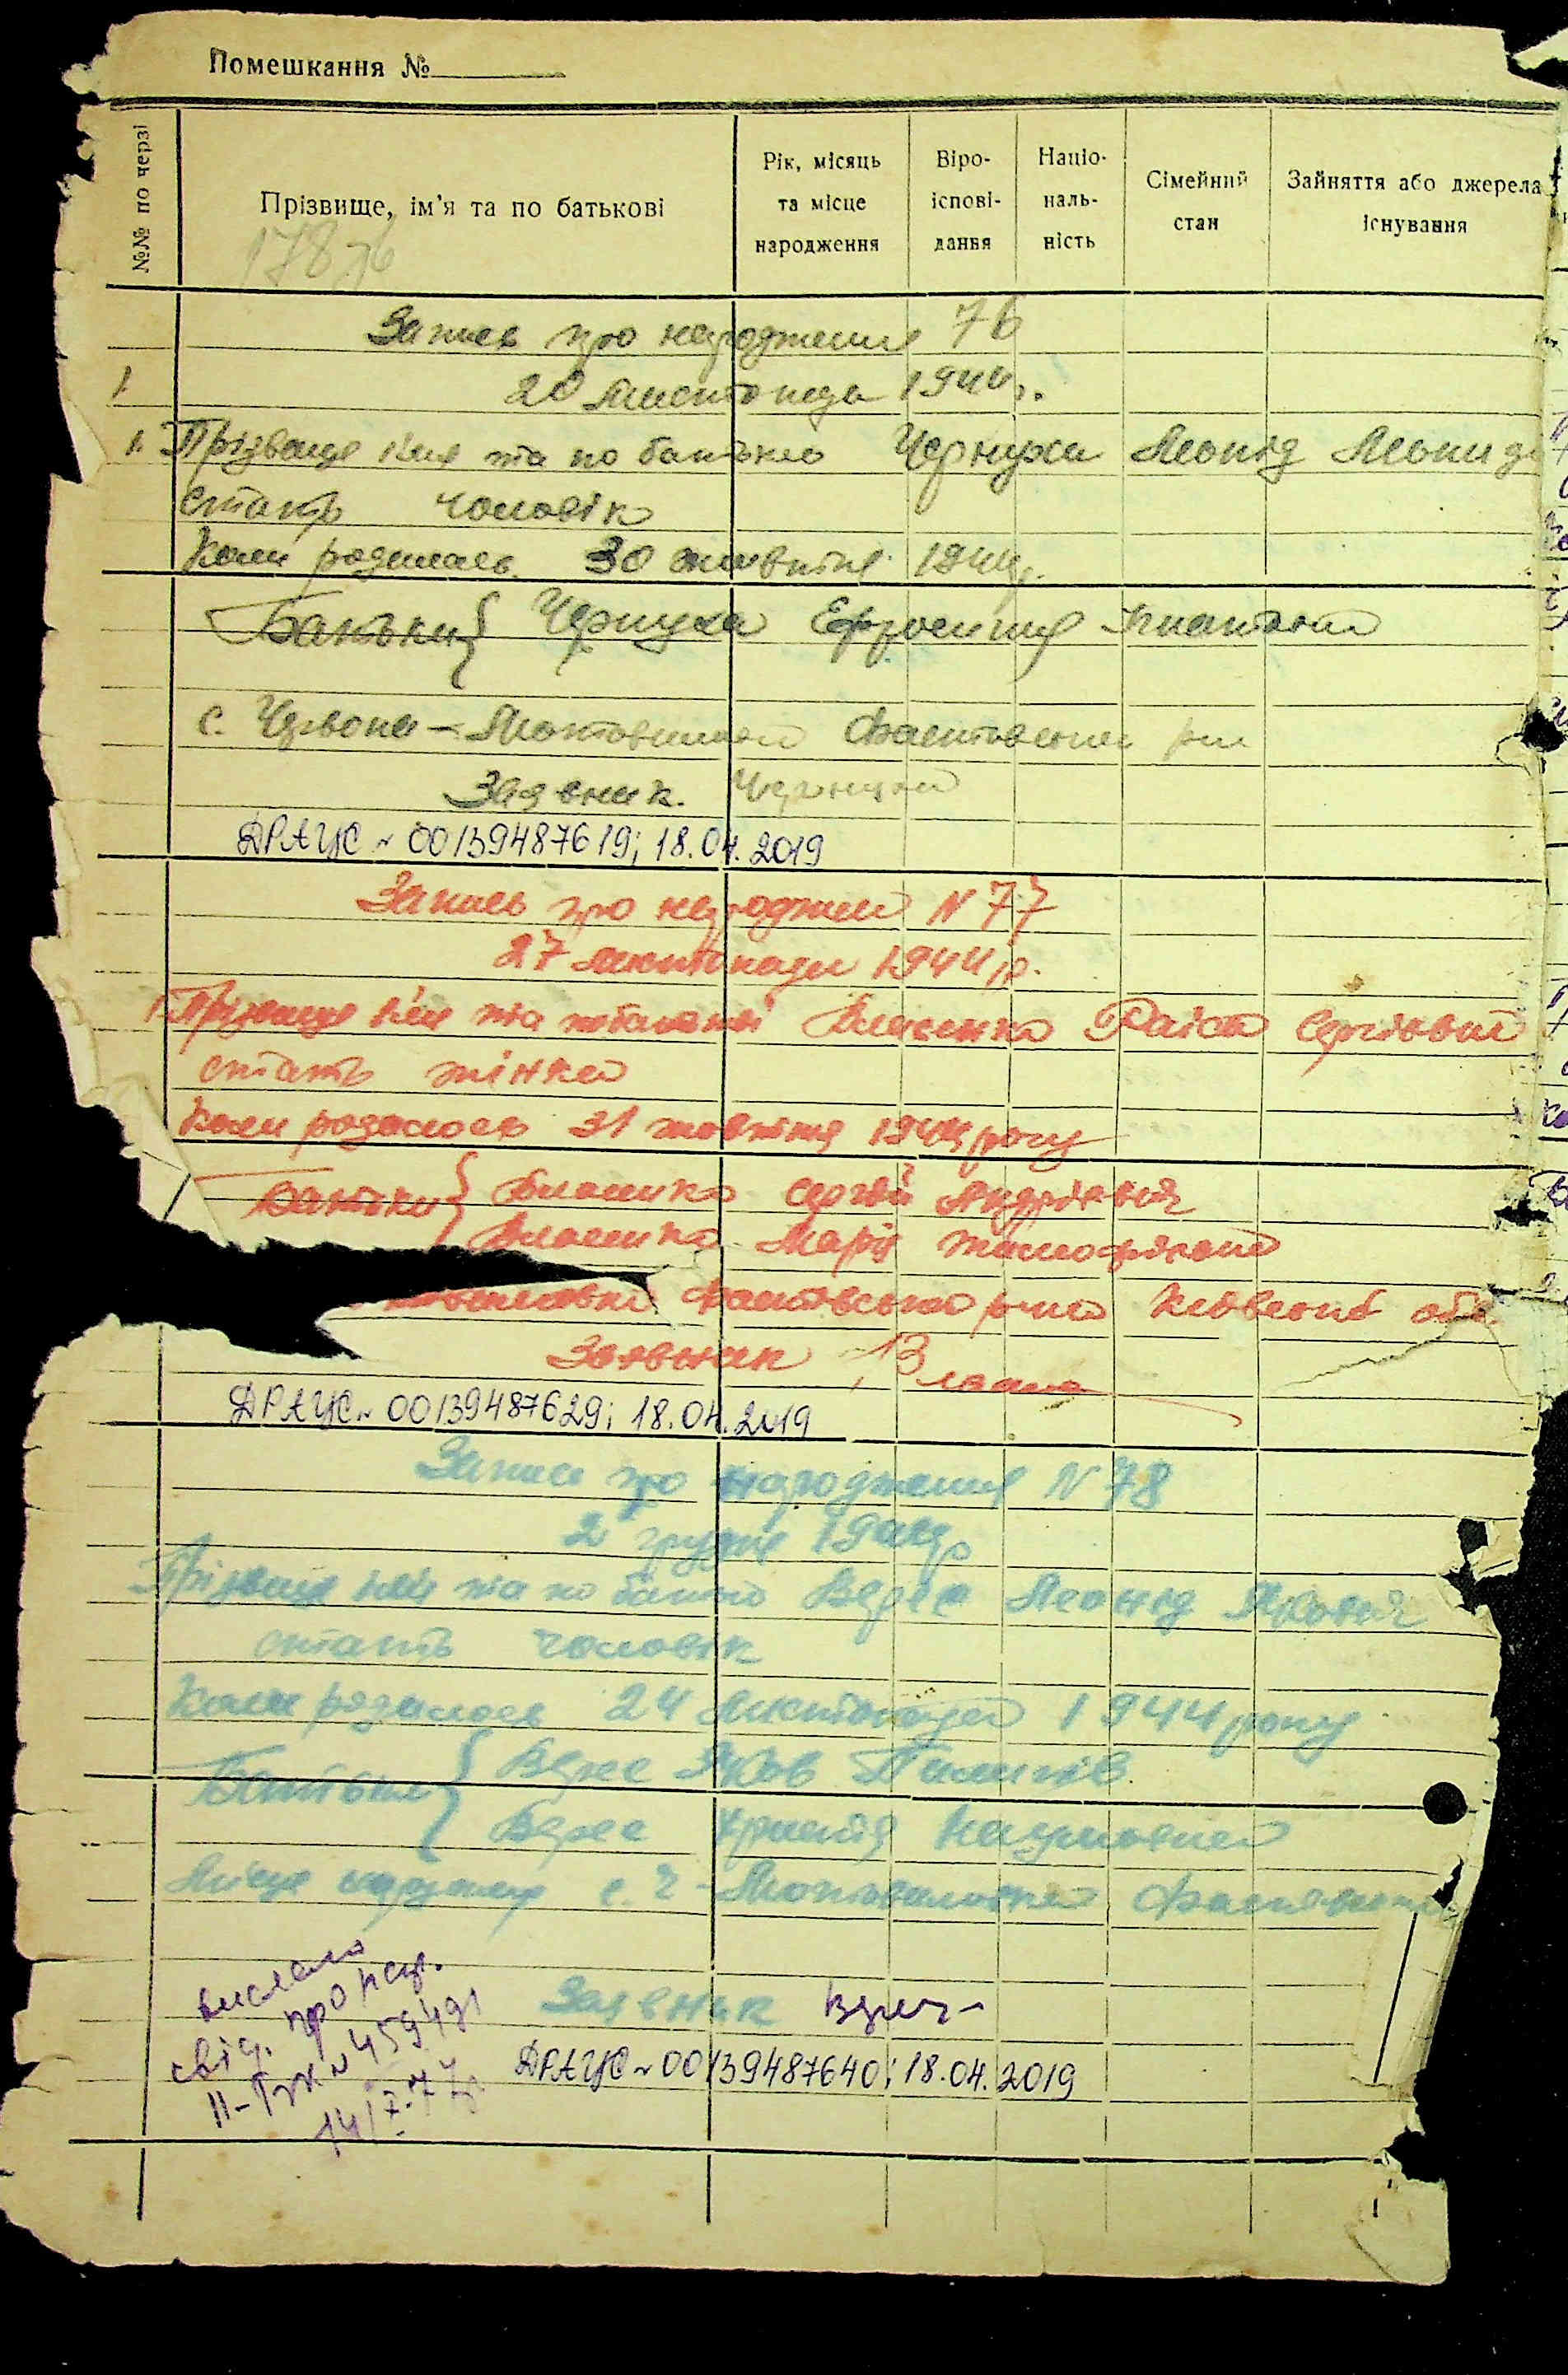 Помешкання №
№№ по черзі
Прізвище, ім'я та по батькові
Рік, місяць та місце народження
Віроісповідання
Національність
Сімейний стан
Зайняття або джерела існування
Запис про народження 76
20 листопада 1944р.
1. Прізвище імя та по батькові Чернуха Леонід Леонид
стать чоловік
Коли родилась 30 жовтня 1944р.
Батьки { Чернуха Ефросиния
с. Червона-Мотовилівка Фастовський р-н
Заявник. Чернуха
ДРАЦС № 00139487619; 18.04.2019
Запись про народжен N 77
27 листопада 1944 р.
1. Прізвище імя та Власенко Раіса Сергіівна
стать жінка
Коли родилось 31 жовтня 1944 року
Батьки { Власенко Сергій Андрієвич
Власенко Марія
Фастівського р-на Київської обл.
Заявник
ДРАЦС № 00139487629; 18.04.2019
Запис про народження N 78
2 грудня 1944р
Прізвище імя та по батькові Верес Леонід Якович
стать чоловік
Коли родилось 24 листопада 1944 року
Батьки { Верес Яков Пилипів.
Верес Христя Наумовна
Місце с. Ч-Мотовиловка
вислано
свід. про нар.
II-
459491
14/
Заявник Верес
ДРАЦС № 00139487640; 18.04.2019